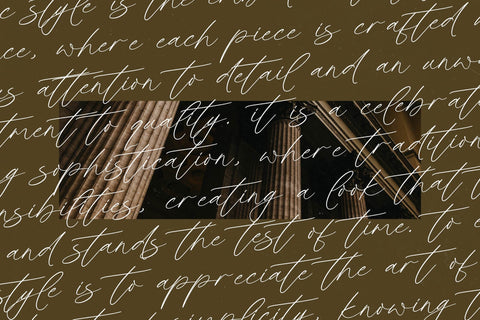 style is the
ce, where each piece is crafted
s attention to detail and an unw
tment to quality. it is a celebrat
g sophistication, where tradition
nsibilities, creating a look that
and stands the test of time. to
style is to appreciate the art of
simplicity, knowing